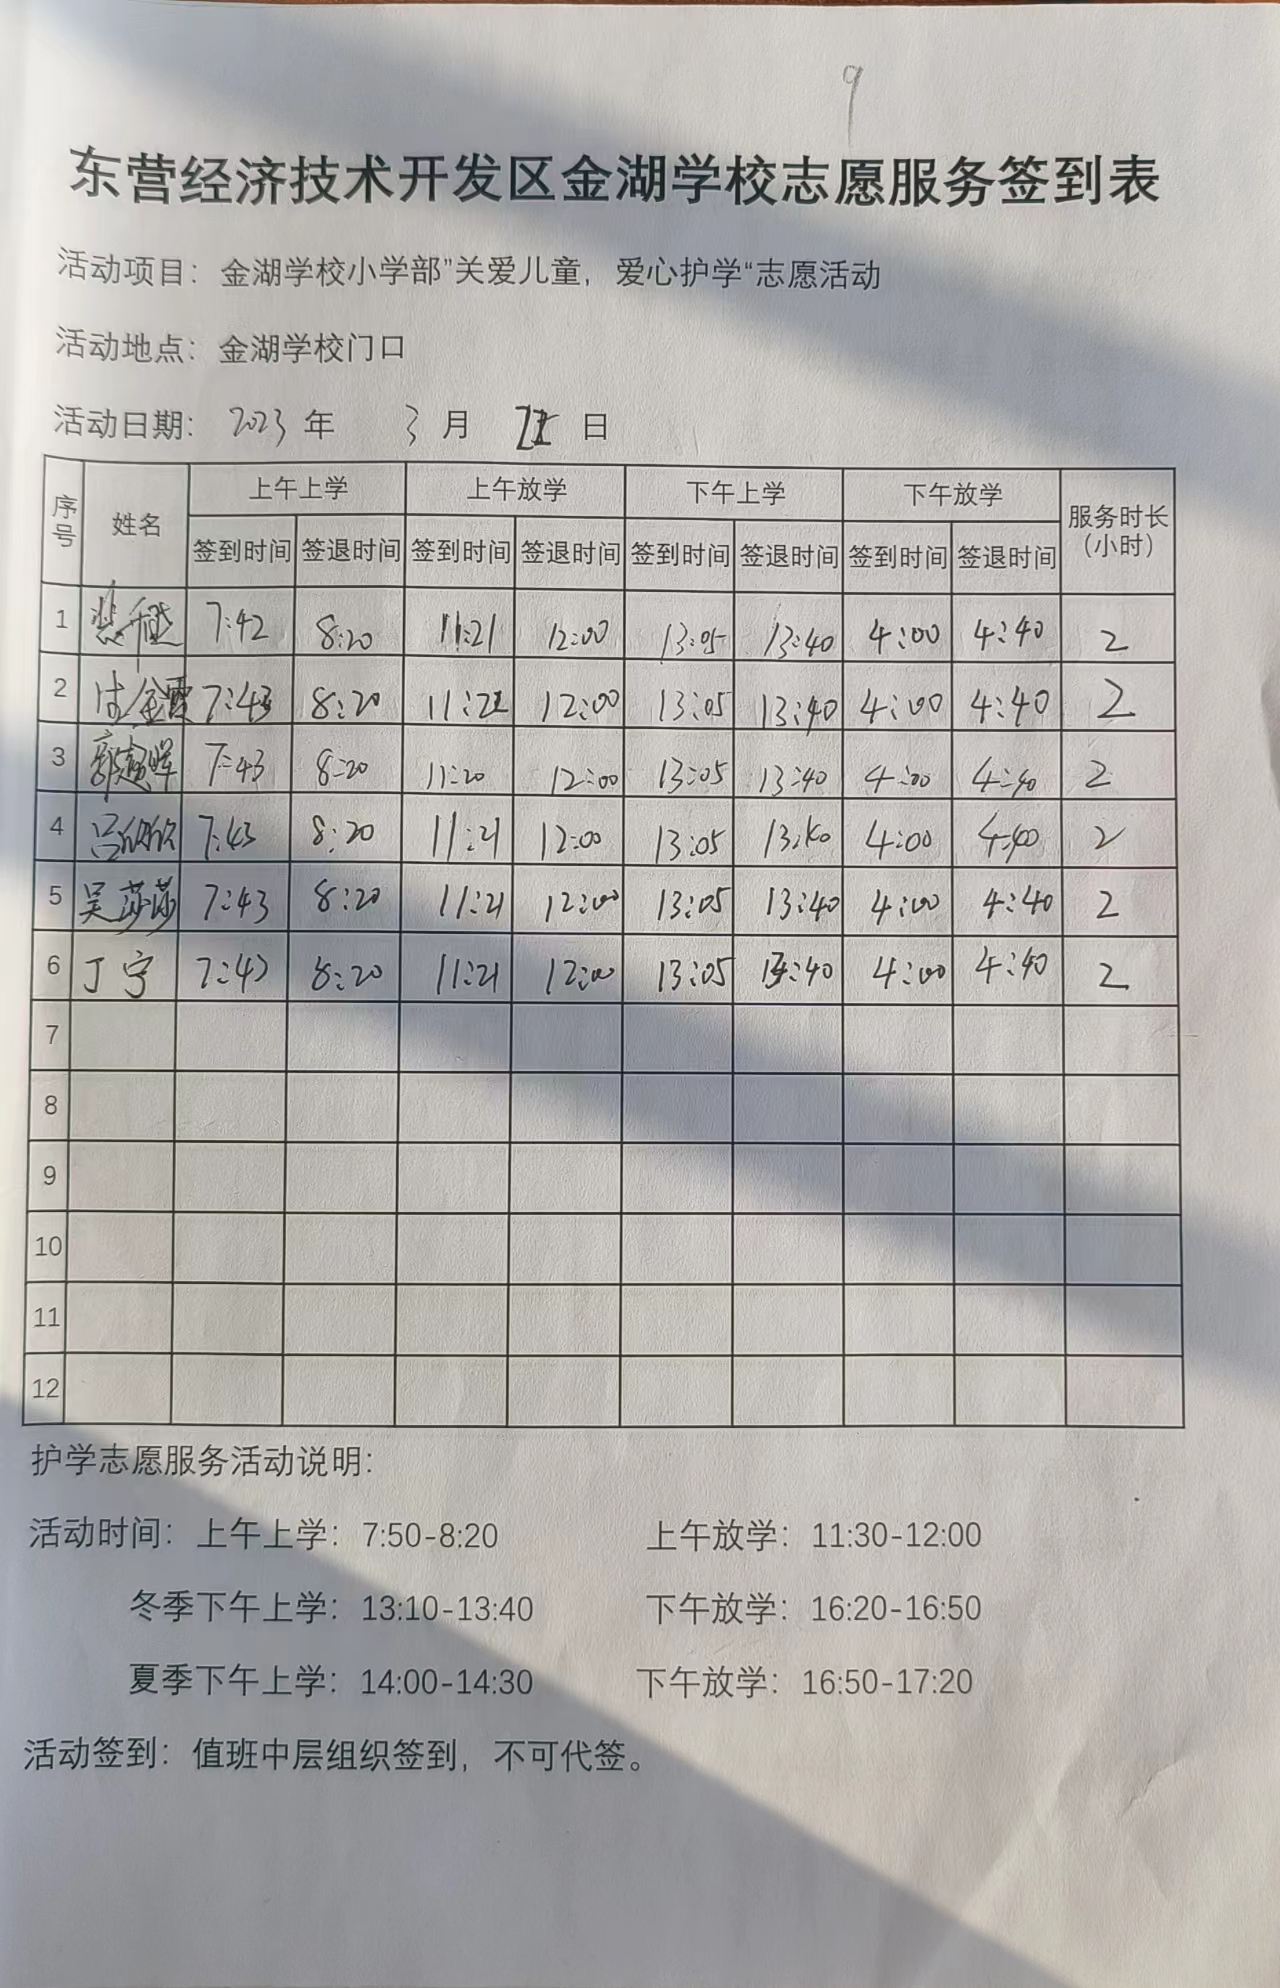 9
东营经济技术开发区金湖学校志愿服务签到表
活动项目：金湖学校小学部”关爱儿童，爱心护学“志愿活动
活动地点：金湖学校门口
活动日期： 2023 年 3 月 日
序号 姓名 上午上学 上午放学 下午上学 下午放学 服务时长（小时）
签到时间 签退时间 签到时间 签退时间 签到时间 签退时间 签到时间 签退时间
1 7:42 8:20 11:21 12:00 13:05 13:40 4:00 4:40 2
2 7:43 8:20 11:21 12:00 13:05 13:40 4:00 4:40 2
3 7:43 8:20 11:20 12:00 13:05 13:40 4:00 4:40 2
4 吕欣欣 7:43 8:20 11:21 12:00 13:05 13:40 4:00 4:40 2
5 吴莎莎 7:43 8:20 11:21 12:00 13:05 13:40 4:00 4:40 2
6 丁宁 7:42 8:20 11:21 12:00 13:05 13:40 4:00 4:40 2
7
8
9
10
11
12
护学志愿服务活动说明：
活动时间：上午上学：7:50-8:20 上午放学：11:30-12:00
冬季下午上学：13:10-13:40 下午放学：16:20-16:50
夏季下午上学：14:00-14:30 下午放学：16:50-17:20
活动签到：值班中层组织签到，不可代签。